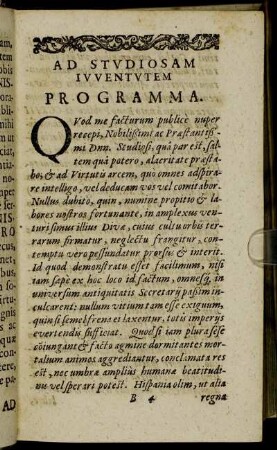 AD STVDIOSAM
IVVENTVTEM
PROGRAMMA.
QVod me facturum publicè nuper
recepi, Nobilißimi ac Præstantiß-
mi Dnn. Studiosi, quâ par est, sal-
tem quâ potero, alacritate præsta-
bo, & ad Virtutis arcem, quo omnes adspira-
re intelligo, vel deducam vos vel comitabor.
Nullus dubitô, quin, numine propitio & la-
bores nostros fortunante, in amplexus ven-
turi simus illius Divæ, cuius cultu orbis ter-
rarum firmatur, neglectu frangitur, con-
temptu vero pessundatur prorsus & interit.
Id quod demonstratu esset facilimum, nisi
tam sæpe ex hoc loco id factum, omnesq́; in
universum antiquitatis Secretarij passim in-
culcarent: nullum vitium tam esse exiguum,
quin si semel frena ei laxentur, totis imperijs
evertendis sufficiat. Quod si tam plura sese
cōiungant & facto agmine dormitantes mor-
talium animos aggrediantur, conclamata res
est, nec umbræ amplius humanæ beatitudi-
nis vel sperari potest. Hispania olim, ut alia
B 4 regna
AD